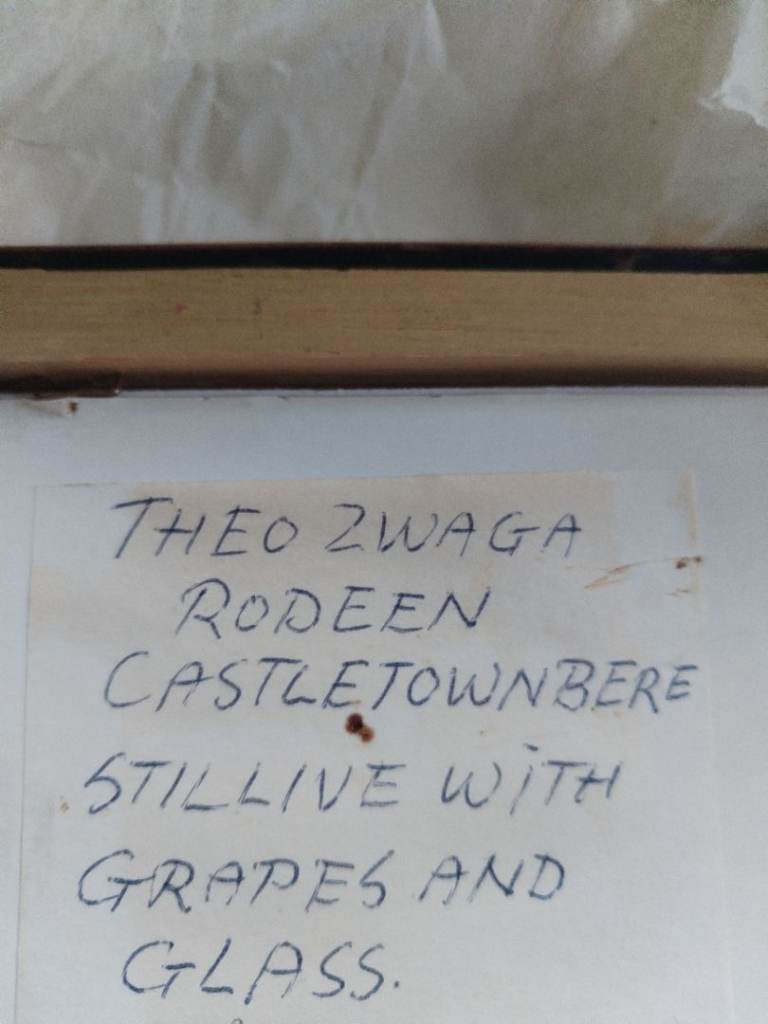 THEO ZWAGA
RODEEN
CASTLETOWNBERE
STILLIVE WITH
GRAPES AND
GLASS.